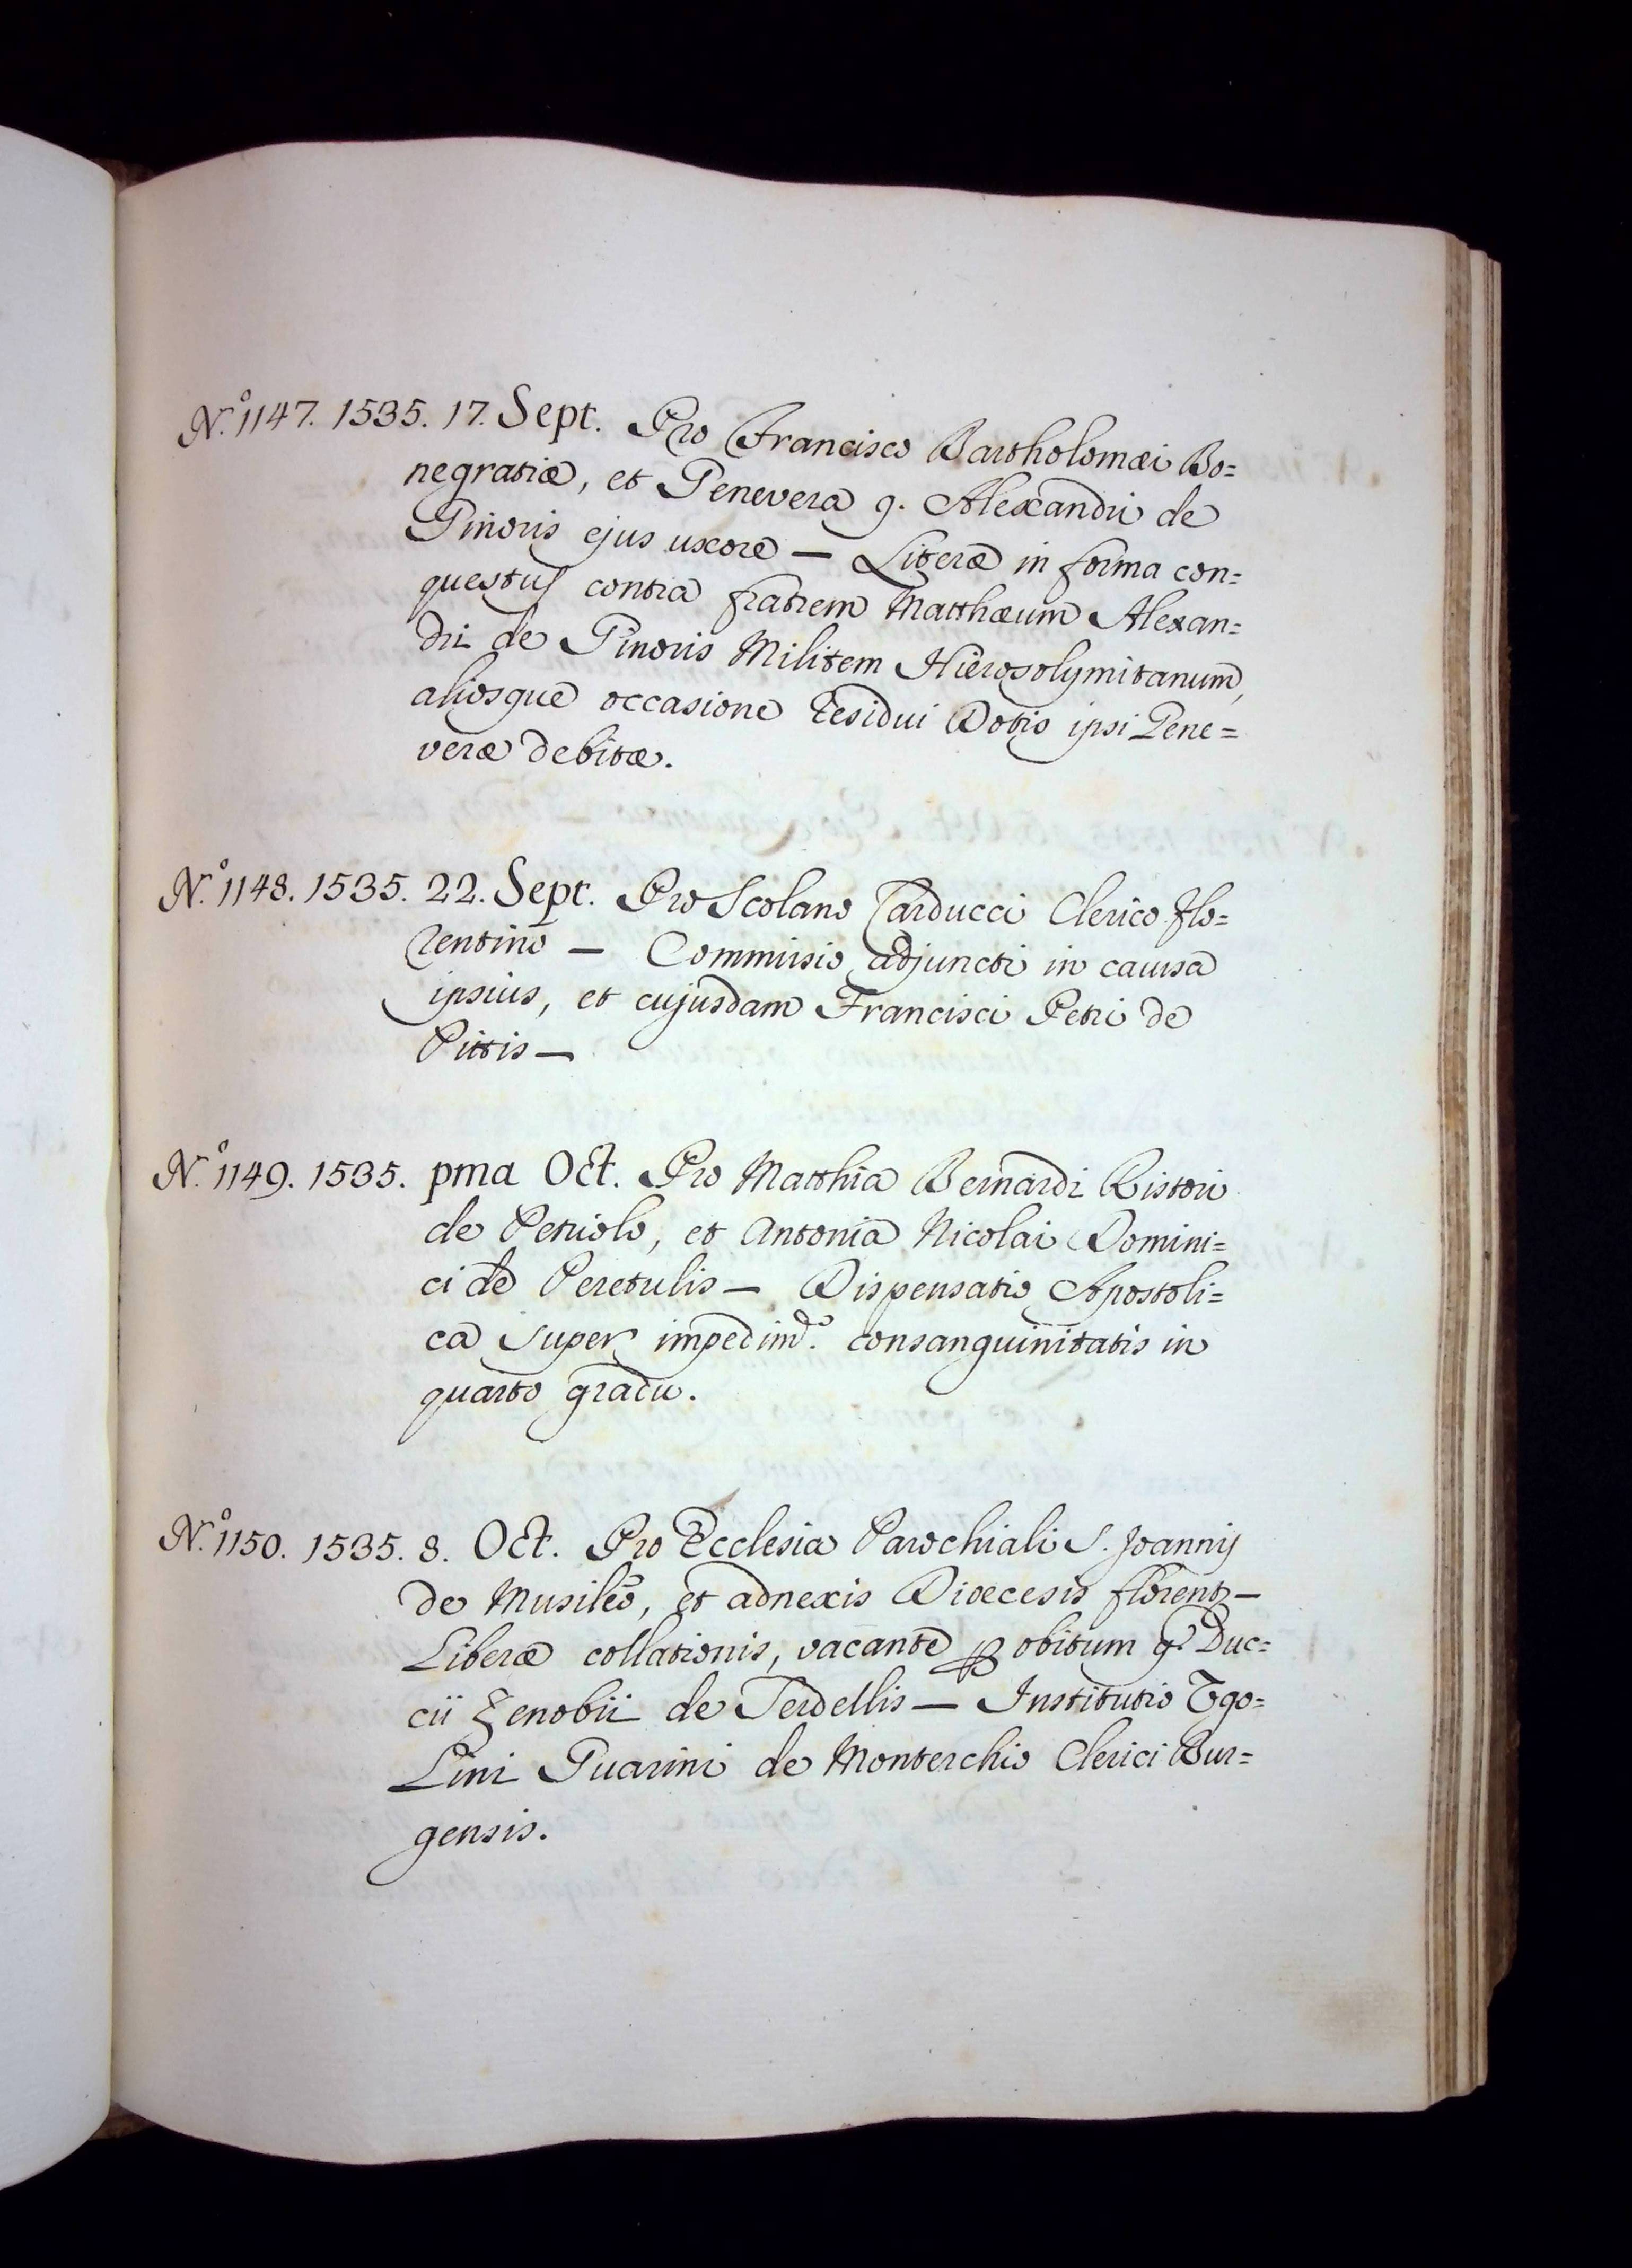 N.º 1147. 1535. 17. Sept. Pro Francisco Bartholomæi Bo=
negratiæ, et Genevera q. Alexandri de
Ginoris ejus uxore — Literæ in forma con=
questus contra fratrem Matthæum Alexan=
dri de Ginoris Militem Hierosolymitanum,
aliosque occasione Residui Dotis ipsi Gene=
veræ debitæ.
N.º 1148. 1535. 22. Sept. Pro Scolano Carducci Clerico Flo=
rentino — Commissio adjuncti in causa
ipsius, et cujusdam Francisci Petri de
Pittis —
N.º 1149. 1535. pma Oct. Pro Matthia Bernardi Ristori
de Petriolo, et Antonia Nicolai Domini=
ci de Peretulis — Dispensatio Apostoli=
ca super impedimº. consanguinitatis in
quarto gradu.
N.º 1150. 1535. 8. Oct. Pro Ecclesia Parochiali S. Joannis
de Musileo, et adnexis Dioecesis florent —
Liberæ collationis, vacante p obitum q. Duc=
cii Zenobii de Serdellis — Institutio Ugo=
Lini Guarini de Monterchio Clerici Bur=
gensis.